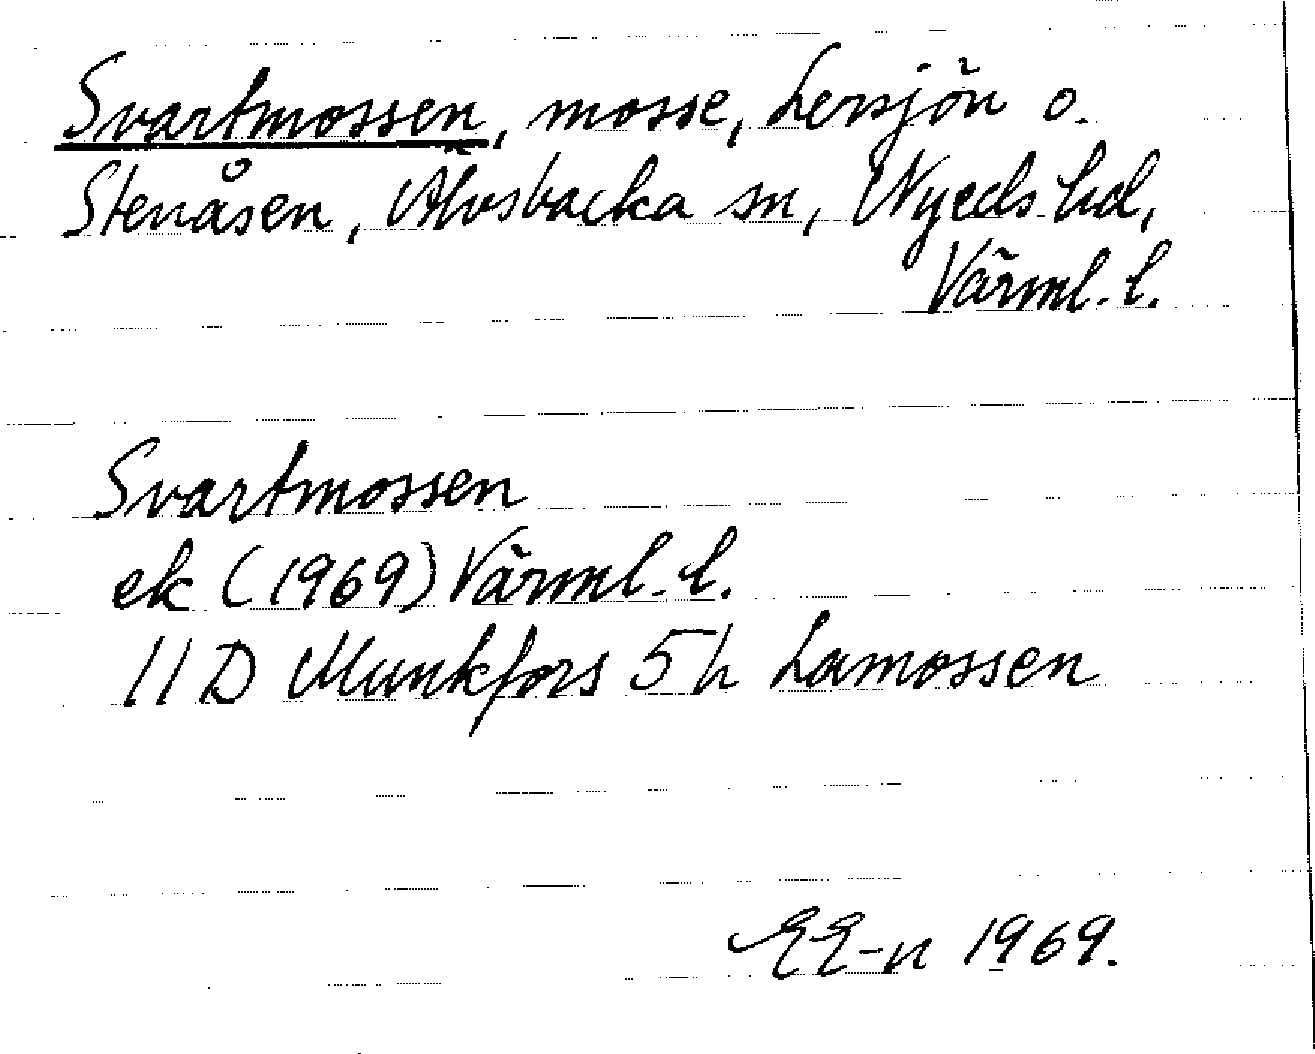 Svartmossen, mosse, Lersjön o.
Stenåsen, Älvsbacka sn, Nyeds hd,
Värml. l.
Svartmossen
ek (1969) Värml. l.
11 D Munkfors 5 h Lamossen
EE-n 1969.